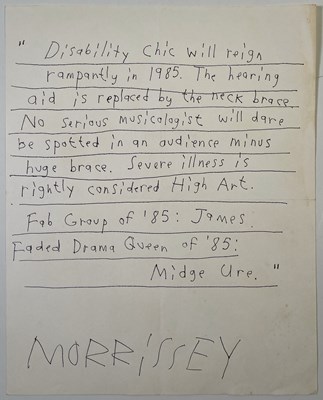 " Disability Chic will reign
rampantly in 1985. The hearing
aid is replaced by the neck brace.
No serious musicologist will dare
be spotted in an audience minus
huge brace. Severe illness is
rightly considered High Art.
Fab Group of '85: James.
Faded Drama Queen of '85:
Midge Ure. "
MORRISSEY